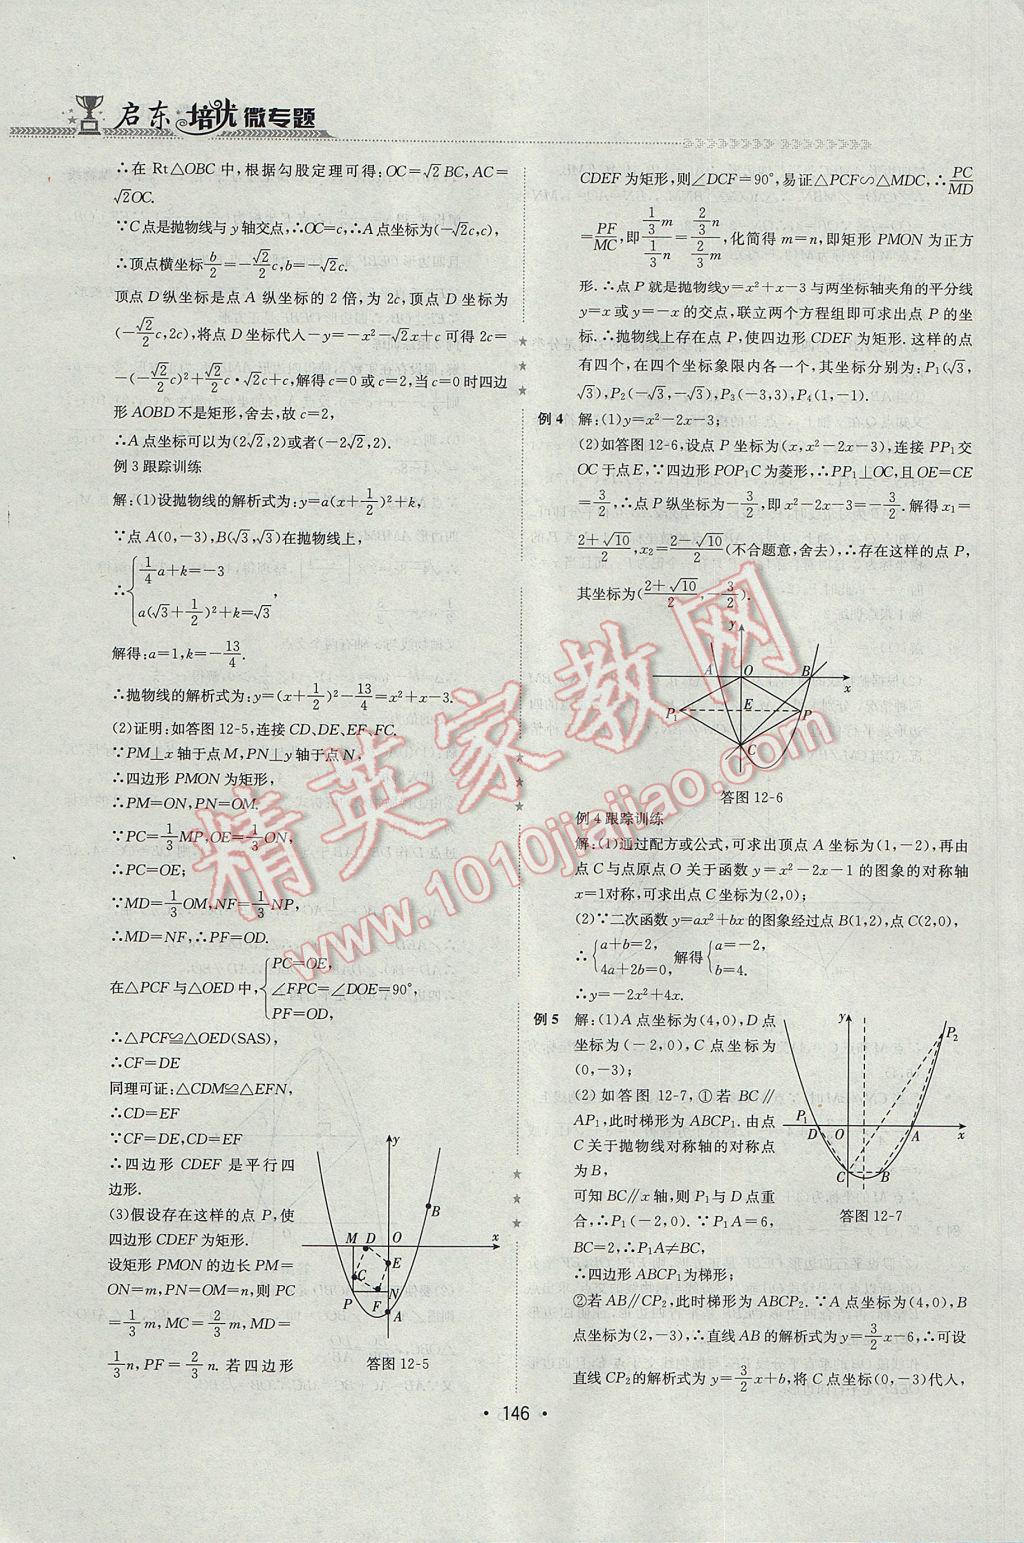 启东培优微专题
∴在 Rt△OBC 中,根据勾股定理可得:OC=√2BC,AC=
√2OC.
∵C点是抛物线与y轴交点,∴OC=c,∴A点坐标为(-√2c,c),
∴顶点横坐标b/2=-√2/2c,b=-√2c.
顶点 D 纵坐标是点 A 纵坐标的 2 倍,为 2c,顶点 D 坐标为
(-√2/2c,2c),将点 D 坐标代人-y=-x²-√2x+c可得 2c=
-(-√2/2c)²+√2/2c·√2c+c,解得c=0或c=2,当c=0时四边
形 AOBD 不是矩形,舍去,故 c=2,
∴A 点坐标可以为(2√2,2)或者(-2√2,2).
例 3 跟踪训练
解:(1)设抛物线的解析式为:y=a(x+1/2)²+k,
∵点A(0,-3),B(√3,√3)在抛物线上,
∴{1/4a+k=-3
a(√3+1/2)²+k=√3,
解得:a=1,k=-13/4.
∴抛物线的解析式为:y=(x+1/2)²-13/4=x²+x-3.
(2)证明:如答图 12-5,连接 CD,DE,EF,FC.
∵PM⊥x 轴于点M,PN⊥y轴于点N,
∴四边形 PMON 为矩形,
∴PM=ON,PN=OM.
∵PC=1/3MP,OE=1/3ON,
∴PC=OE;
∵MD=1/3OM,NF=1/3NP,
∴MD=NF,∴PF=OD.
在△PCF 与△OED 中,{PC=OE,
∠FPC=∠DOE=90°,
PF=OD,
∴△PCF≌△OED(SAS),
∴CF=DE
同理可证:△CDM≌△EFN,
∴CD=EF
∵CF=DE,CD=EF
∴四边形 CDEF 是平行四
边形.
(3)假设存在这样的点 P,使
四边形 CDEF 为矩形.
设矩形 PMON 的边长 PM=
ON=m,PN=OM=n,则 PC
=1/3m,MC=2/3m,MD=
1/3n,PF=2/3n.若四边形
y
B
M D O x
C E
P F N
A
答图 12-5
CDEF 为矩形,则∠DCF=90°,易证△PCF∽△MDC,∴PC/MD
=PF/MC,即(1/3m)/(1/3n)=(2/3n)/(2/3m),化简得 m=n,即矩形 PMON 为正方
形.∴点 P 就是抛物线y=x²+x-3与两坐标轴夹角的平分线
y=x 或y=-x 的交点,联立两个方程组即可求出点 P 的坐
标.∴抛物线上存在点 P,使四边形CDEF为矩形. 这样的点
有四个,在四个坐标象限内各一个,其坐标分别为:P₁(√3,
√3),P₂(-√3,-√3),P₃(-3,3),P₄(1,-1).
例 4 解:(1)y=x²-2x-3;
(2)如答图12-6,设点 P 坐标为(x,x²-2x-3),连接 PP₁交
OC于点E,∵四边形POP₁C为菱形,∴PP₁⊥OC,且OE=CE
=3/2,∴点 P 纵坐标为-3/2,即 x²-2x-3=-3/2. 解得 x₁=
(2+√10)/2,x₂=(2-√10)/2(不合题意,舍去),∴存在这样的点 P,
其坐标为((2+√10)/2,-3/2).
y
A O B x
P₁ E P
C
答图 12-6
例 4 跟踪训练
解:(1)通过配方或公式,可求出顶点 A 坐标为(1,-2),再由
点 C 与点原点 O 关于函数 y=x²-2x-1 的图象的对称轴
x=1对称,可求出点 C 坐标为(2,0);
(2)∵二次函数y=ax²+bx的图象经过点 B(1,2),点 C(2,0),
∴{a+b=2,
4a+2b=0, 解得{a=-2,
b=4.
∴y=-2x²+4x.
例 5 解:(1)A 点坐标为(4,0),D 点
坐标为(-2,0),C 点坐标为
(0,-3);
(2)如答图 12-7,①若 BC∥
AP₁,此时梯形为 ABCP₁.由点
C 关于抛物线对称轴的对称点
为 B,
可知 BC∥x 轴,则 P₁与 D 点重
合,∴P₁(-2,0).∵P₁A=6,
BC=2,∴P₁A≠BC,
∴四边形 ABCP₁为梯形;
②若 AB∥CP₂,此时梯形为 ABCP₂.∵A 点坐标为(4,0),B
点坐标为(2,-3),∴直线 AB 的解析式为y=3/2x-6,∴可设
直线 CP₂的解析式为 y=3/2x+b,将 C 点坐标(0,-3)代人,
y
P₂
P₁
D O A x
C B
答图 12-7
精英家教网
www.1010jiajiao.com
·146·